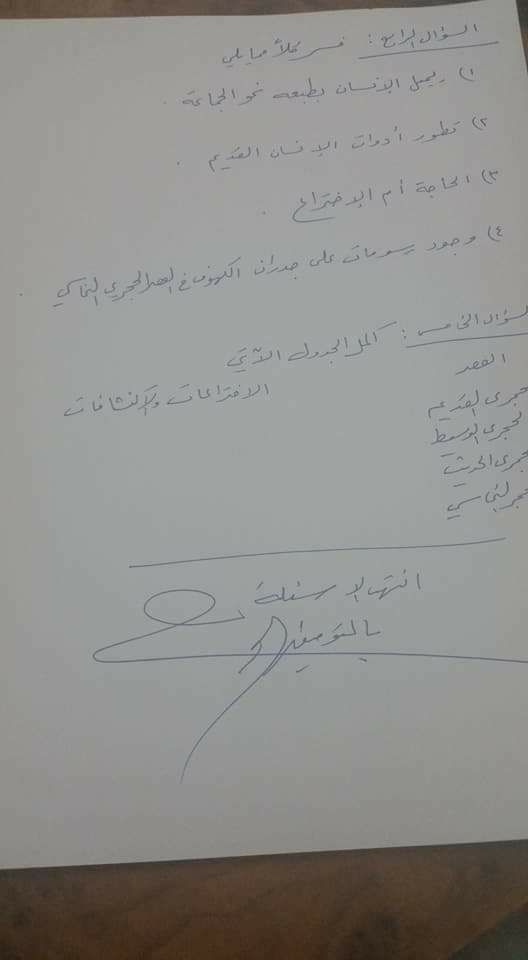 السؤال الرابع : فسر كلاً مما يلي
١) يميل الإنسان بطبعه نحو الجماعة .
٢) تطور أدوات الإنسان القديم .
٣) الحاجة أم الإختراع .
٤) وجود رسومات على جدران الكهوف في العصر الحجري النحاسي .
السؤال الخامس : اكمل الجدول الآتي
العصر الاختراعات والاكتشافات
الحجري القديم
الحجري الوسيط
الحجري الحديث
الحجري النحاسي
انتهت الاسئلة
بالتوفيق